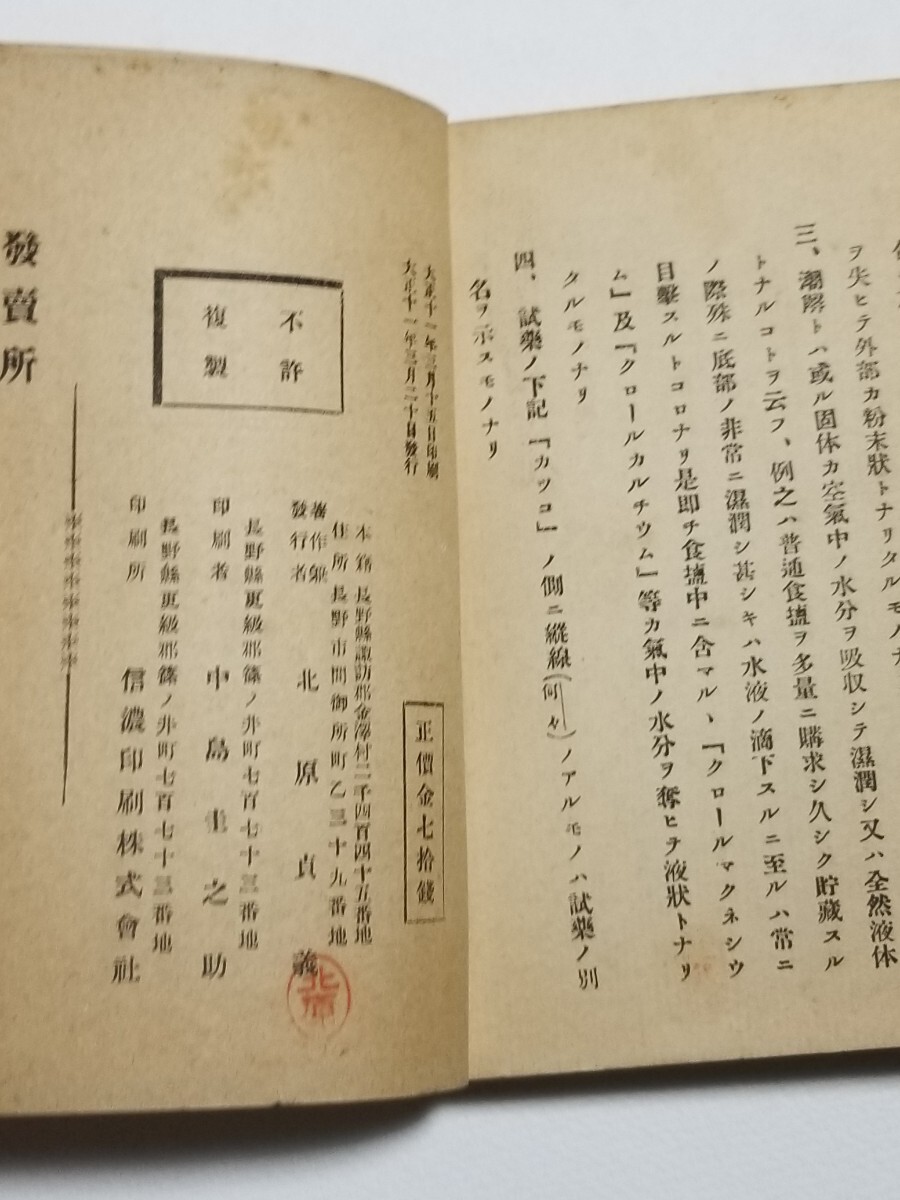 ヲ失ヒテ外部カ粉末狀トナリタルモノナ
三、潮解トハ或ル固体カ空氣中ノ水分ヲ吸収シテ濕潤シ又ハ全然液体
トナルコトヲ云フ、例之ハ普通食鹽ヲ多量ニ購求シ久シク貯藏スル
ノ際殊ニ底部ノ非常ニ濕潤シ甚シキハ水液ノ滴下スルニ至ルハ常ニ
目擊スルトコロナリ是即チ食鹽中ニ含マル、『クロールマクネシウ
ム』及『クロールカルチウム』等カ氣中ノ水分ヲ奪ヒテ液狀トナリ
タルモノナリ
四、試藥ノ下記『カッコ』ノ側ニ縱線(何々)ノアルモノハ試藥ノ別
名ヲ示スモノナリ
大正十一年三月十五日印刷
大正十一年三月二十日發行
正價金七拾錢
不許
複製
本籍 長野縣諏訪郡金澤村二千四百四十五番地
住所 長野市間御所町乙三十九番地
著作兼
發行者 北原貞義
北原
長野縣更級郡篠ノ井町七百七十三番地
印刷者 中島圭之助
長野縣更級郡篠ノ井町七百七十三番地
印刷所 信濃印刷株式會社
發賣所